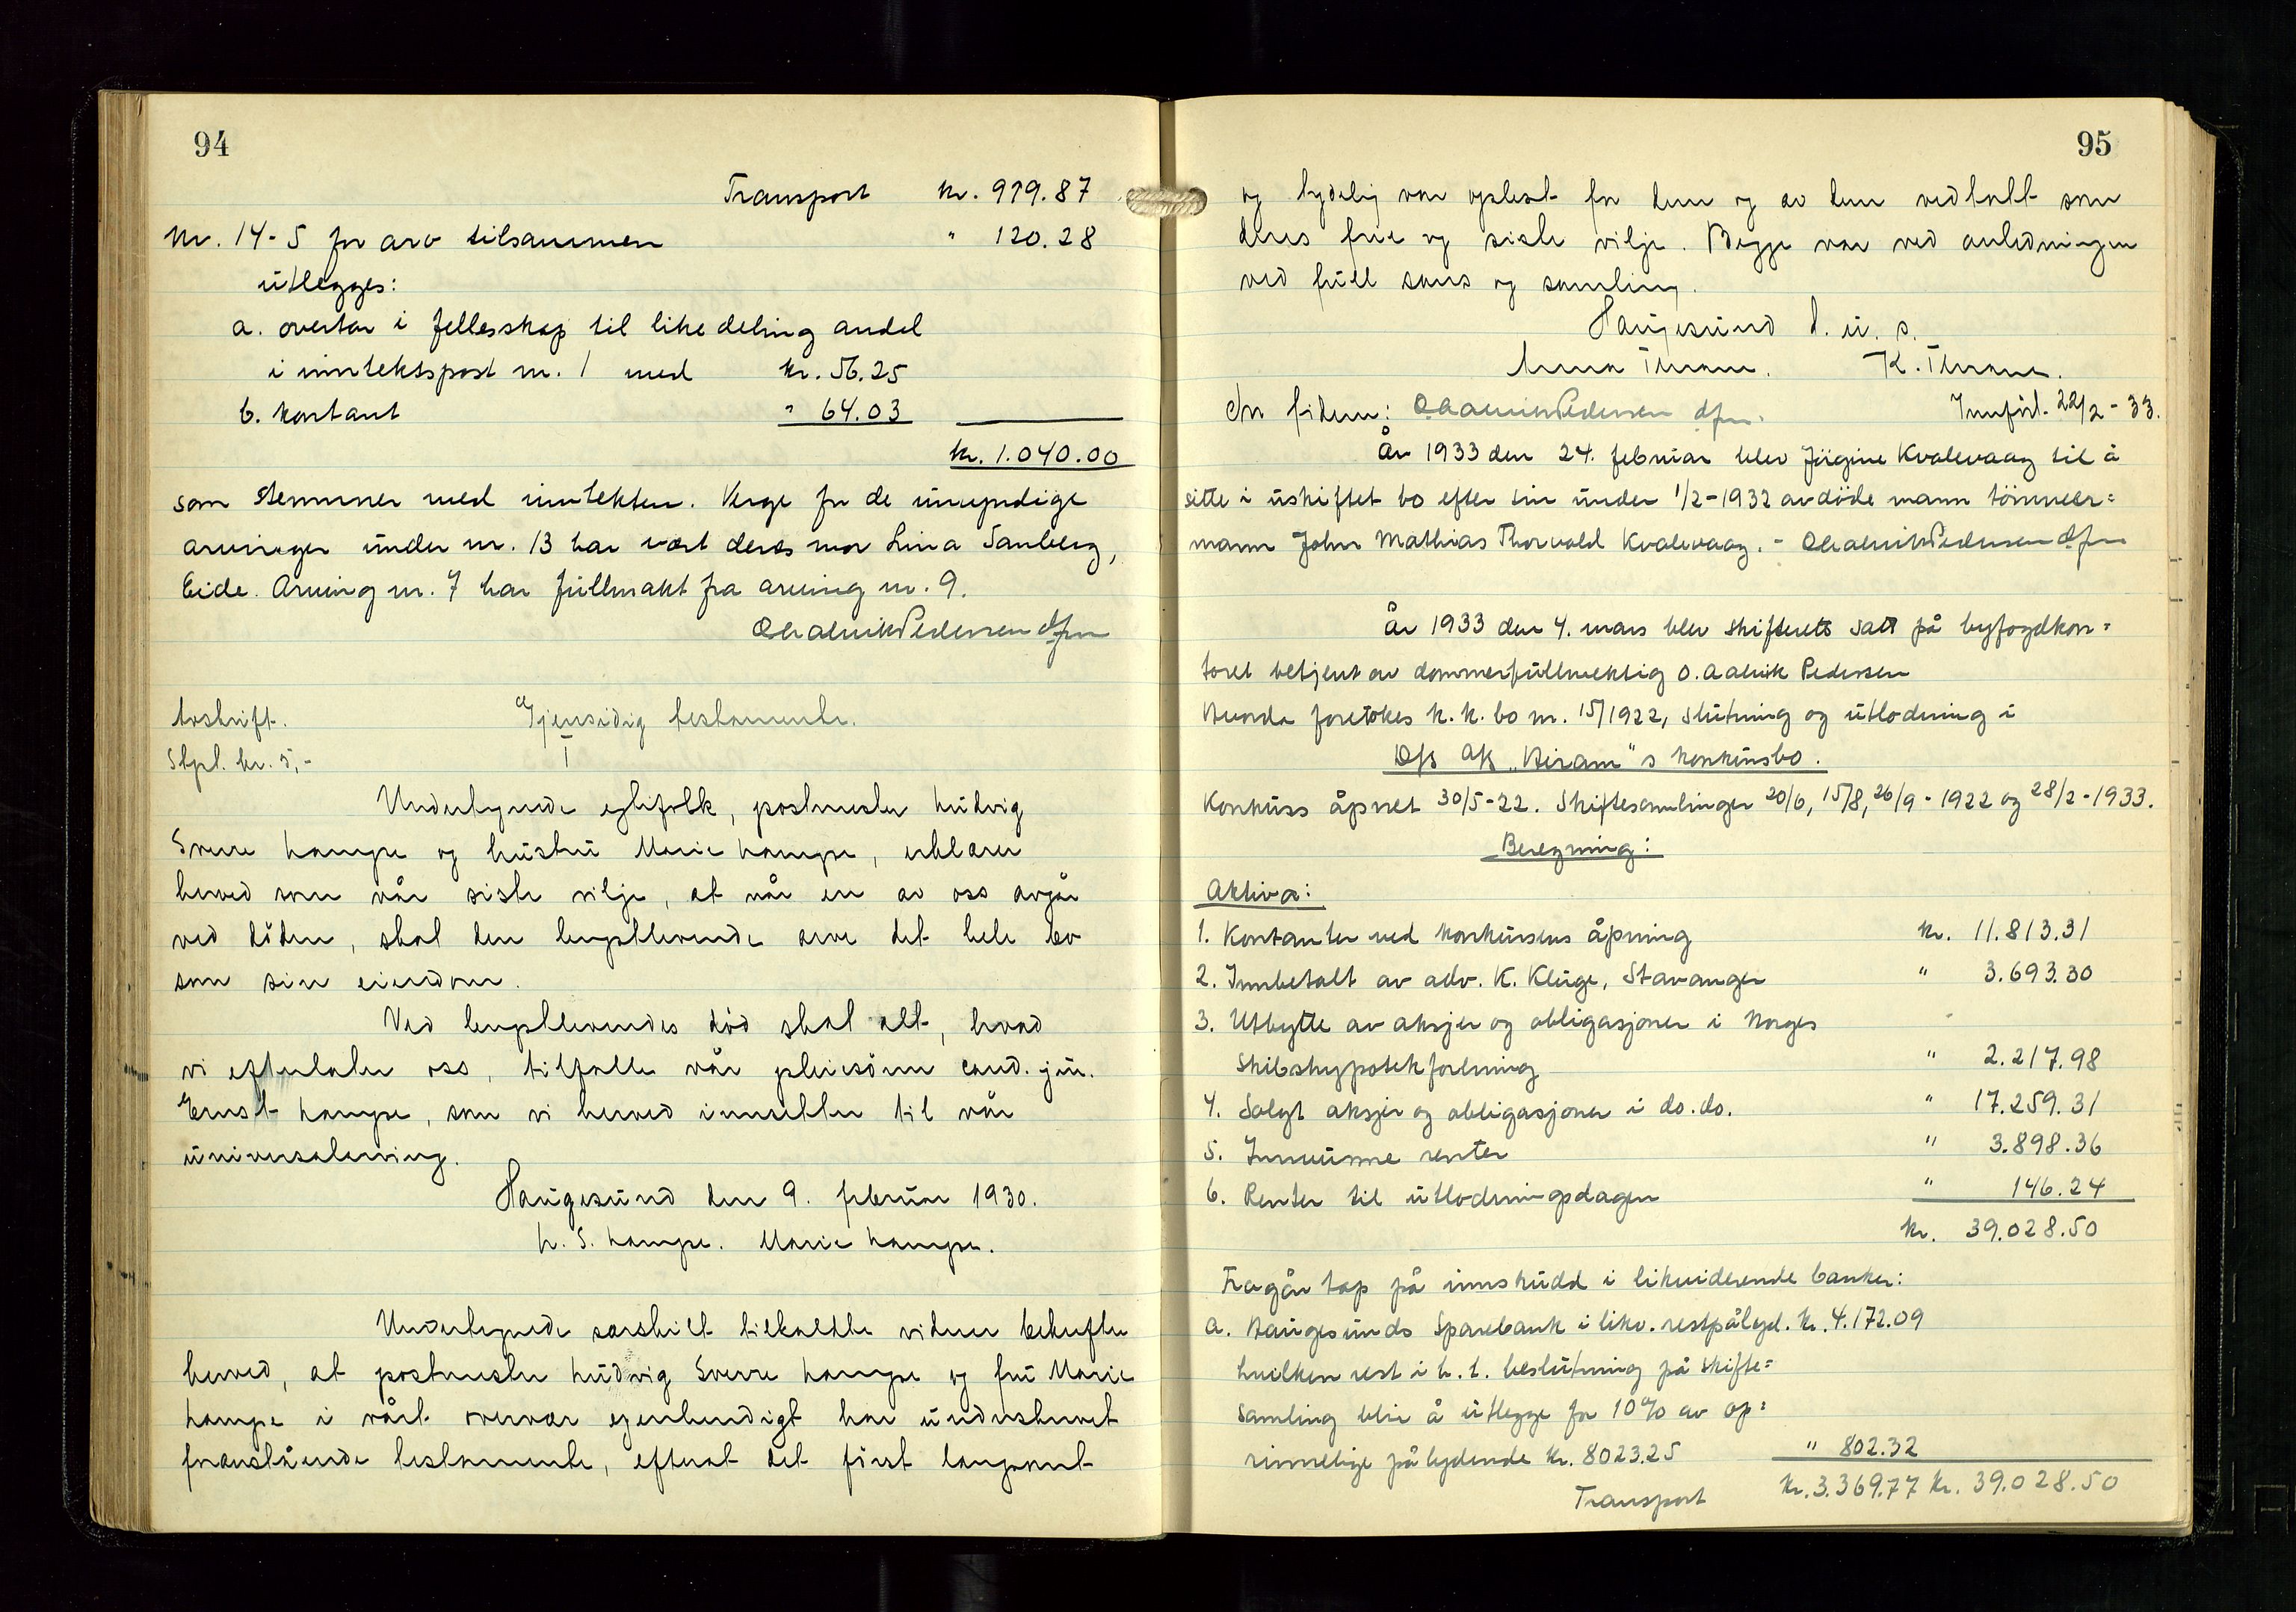 94
Transport kr. 919.87
Nr. 14-5 for arv tilsammen " 120.28
utlegges:
a. overtar i fellesskap til like deling andel
i inntektspost nr. 1 med kr. 56.25
b. kontant " 64.03
kr. 1.040.00
som stemmer med inntekten. Verge for de umyndige
arvinger under nr. 13 har vært deres mor Lina Sanberg,
Eide. Arving nr. 7 har fullmakt fra arving nr. 9.
O. Aalvik Pedersen dfm
Avskrift. Gjensidig testamente.
Stpl. kr. 5,- I
Undertegnede egtefolk, postmester Ludvig
Sverre Lampe og hustru Marie Lampe, erklærer
herved som vår siste vilje, at når en av oss avgår
ved døden, skal den lengstlevende arve det hele bo
som sin eiendom.
Ved lengstlevendes død skal alt, hvad
vi efterlater oss, tilfalle vår pleiesønn cand. jur.
Ernst Lampe, som vi herved innsetter til vår
universalarving.
Haugesund den 9. februar 1930.
L. S. Lampe. Marie Lampe.
Undertegnede særskilt tilkaldte vidner bekrefter
herved, at postmester Ludvig Sverre Lampe og fru Marie
Lampe i vårt overvær egenhendigt har underskrevet
foranstående testamente, efterat det først langsomt
95
og tydelig var oplest for dem og av dem vedtatt som
deres frie og siste vilje. Begge var ved anledningen
ved full sans og samling.
Haugesund d. u. s.
Anna Thrane. K. Thrane.
In fidem: O. Aalvik Pedersen dfm. Innført 22/2-33.
År 1933 den 24. februar blev Jørgine Kvalevaag til å
sitte i uskiftet bo efter sin under 1/2-1932 avdøde mann tømmer=
mann John Mathias Thorvald Kvalevaag. - O. Aalvik Pedersen dfm
År 1933 den 4. mars blev skifterett satt på byfogdkon=
toret betjent av dommerfullmektig O. Aalvik Pedersen
Hvorda foretokes k. k. bo nr. 15/1922, slutning og utlodning i
D/S A/S "Hiram"s konkursbo.
Konkurs åpnet 30/5-22. Skiftesamlinger 20/6, 15/8, 26/9-1922 og 28/2-1933.
Beregning:
Aktiva:
1. Kontanter ved konkursens åpning kr. 11.813.31
2. Innbetalt av adv. K. Kluge, Stavanger " 3.693.30
3. Utbytte av aksjer og obligasjoner i Norges
Skibshypotekforening " 2.217.98
4. Solgt aksjer og obligasjoner i do. do. " 17.259.31
5. Innvunne renter " 3.898.36
6. Renter til utlodningsdagen " 146.24
kr. 39.028.50
Fragår tap på innskudd i likviderende banker:
a. Haugesunds Sparebank i likv. restpålyd. kr. 4.172.09
hvilken rest i h. t. beslutning på skifte=
samling blir å utlegge for 10% av op=
rinnelige pålydende kr. 8023.25 " 802.32
Transport kr. 3.369.77 kr. 39.028.50